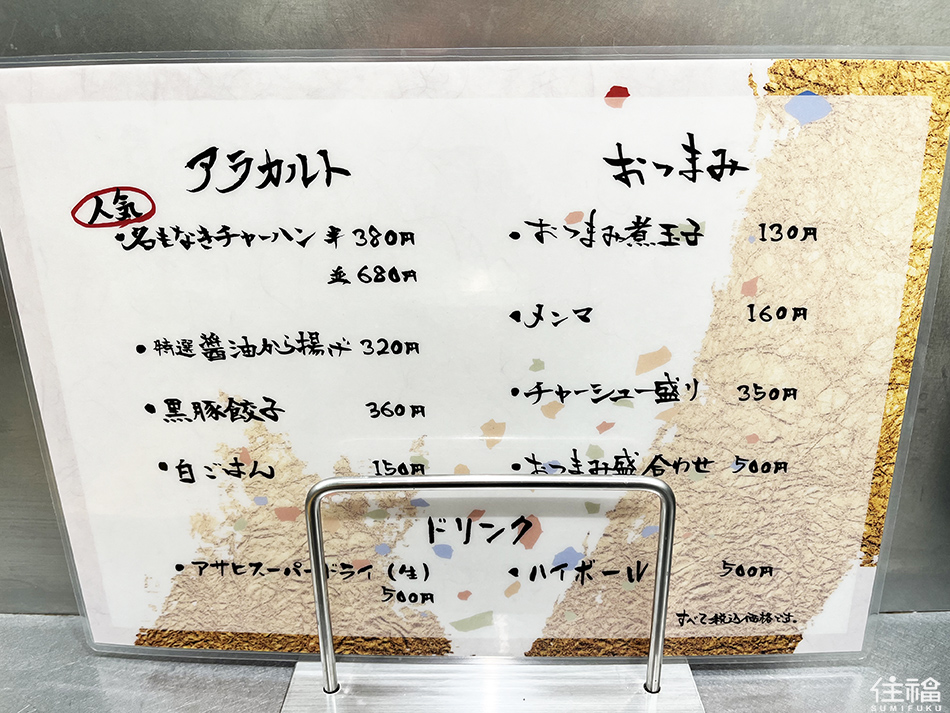 アラカルト
人気
・名もなきチャーハン 半 380円
並 680円
・特選醤油から揚げ 320円
・黒豚餃子 360円
・白ごはん 150円
おつまみ
・おつまみ煮玉子 130円
・メンマ 160円
・チャーシュー盛り 350円
・おつまみ盛合わせ 500円
ドリンク
・アサヒスーパードライ(生)
500円
・ハイボール 500円
すべて税込価格です。
住福
SUMIFUKU